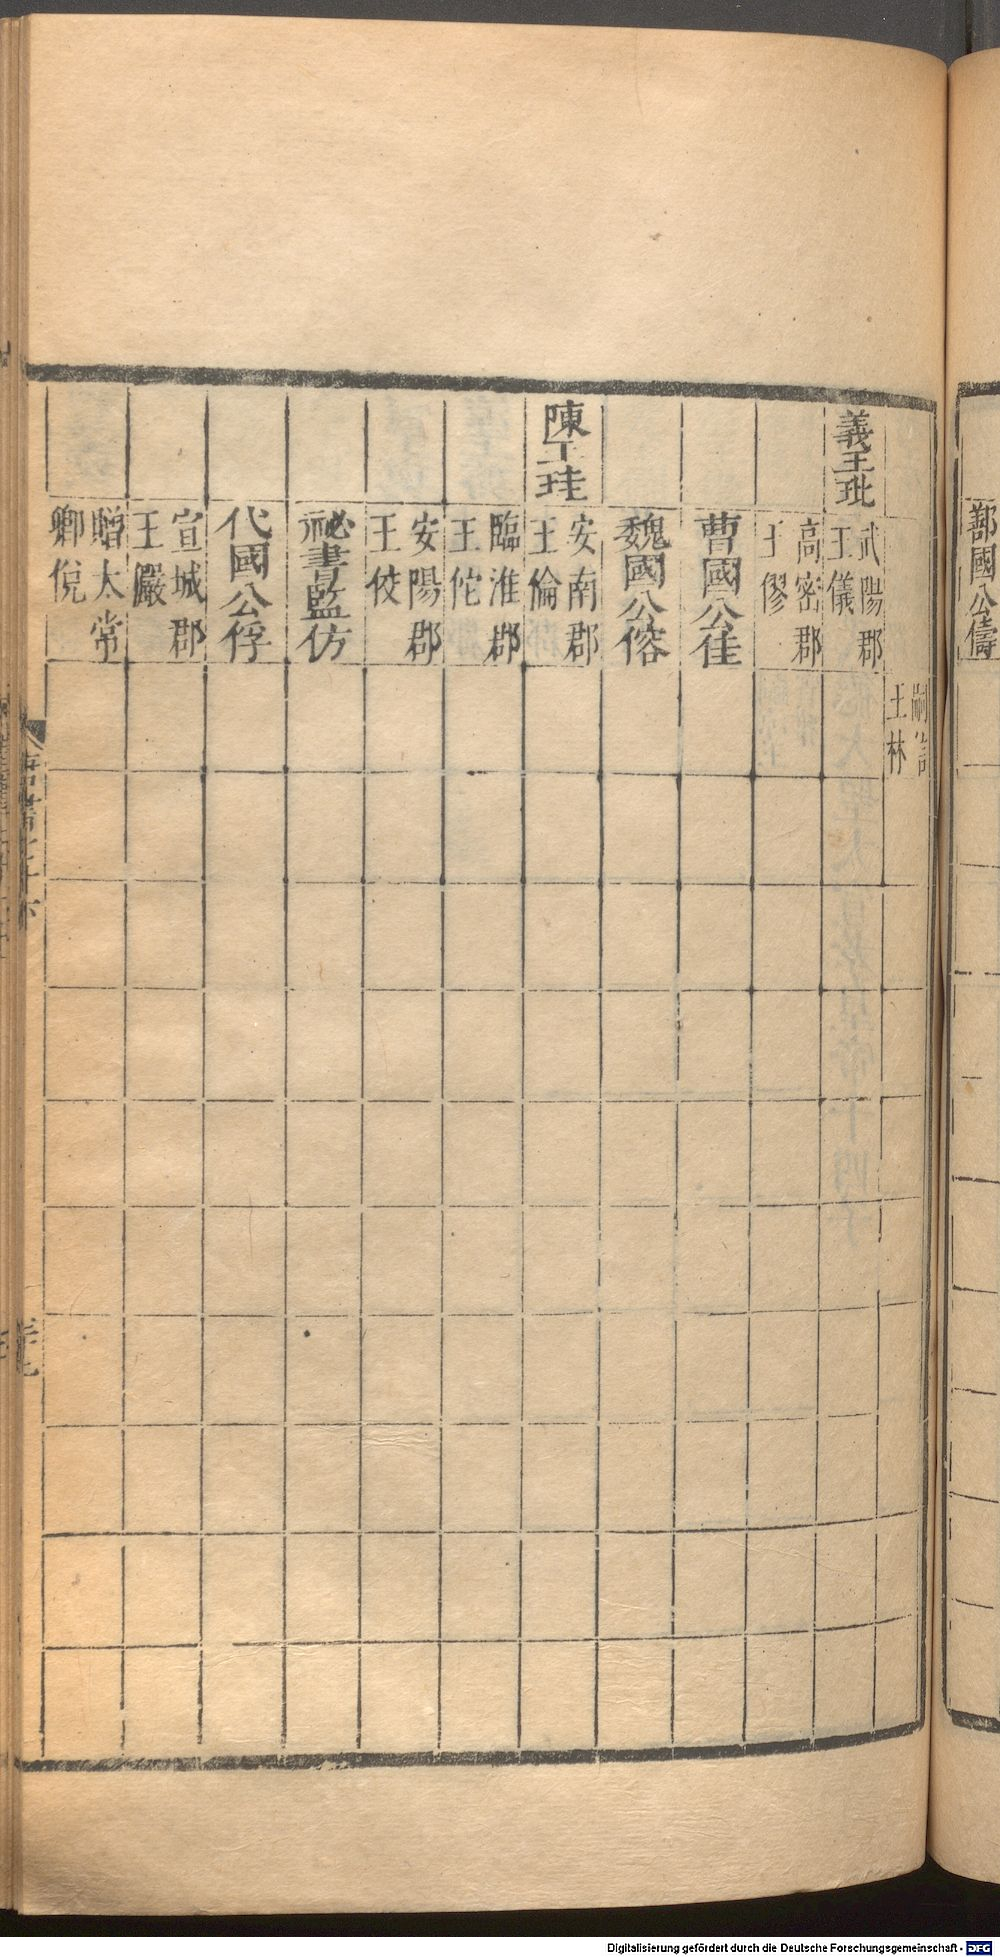 鄰國公儔
嗣許
王林
義王玼
武陽郡
王儀
高密郡
王僇
曹國公佳
魏國公傛
陳王珪
安南郡
王倫
臨淮郡
王佗
安陽郡
王佼
祕書監仿
代國公俘
宣城郡
王儼
贈太常
卿倪
唐書七十
Digitalisierung gefördert durch die Deutsche Forschungsgemeinschaft - DFG